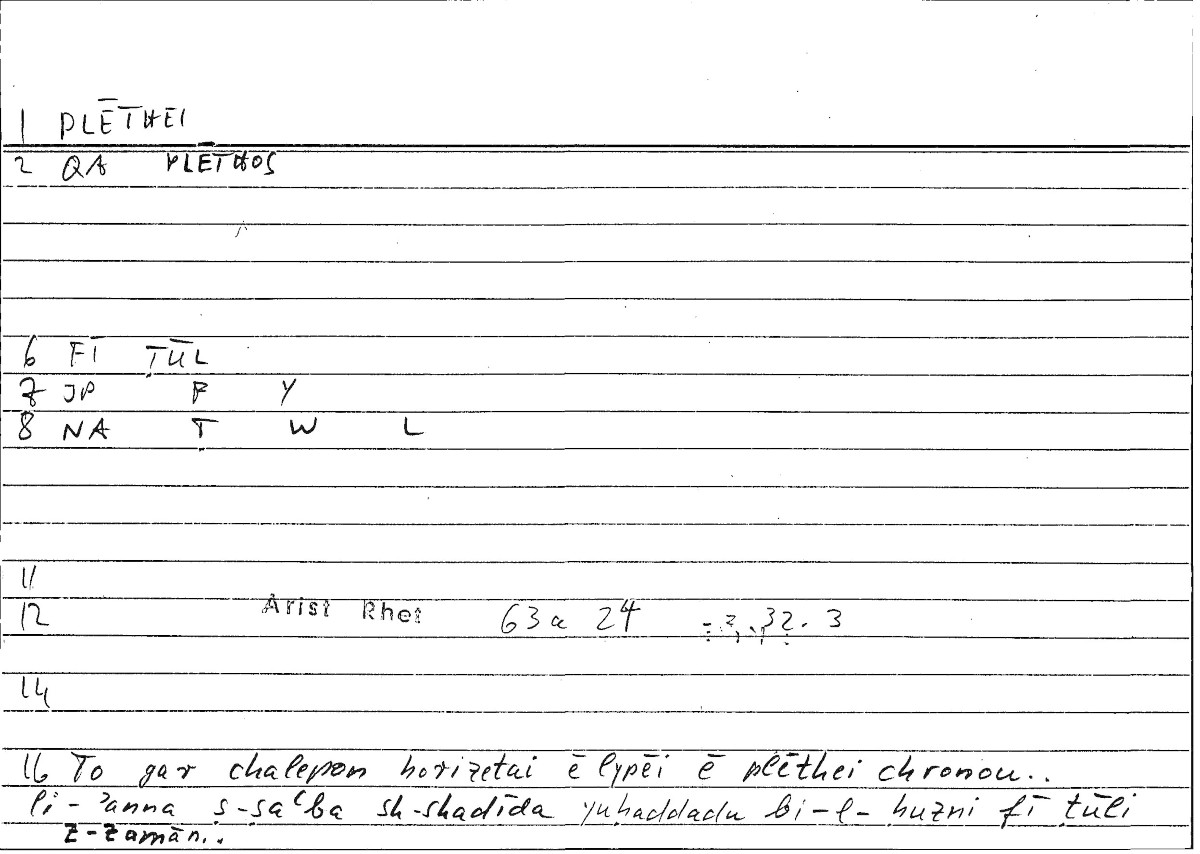 1 PLĒTHEI
2 QA PLĒTHOS
6 FĪ ṬŪL
7 JP F Y
8 NA Ṭ W L
11
12 Arist Rhet 63a 24 32.3
14
16 To gar chalepon horizetai ē lypēi ē plēthei chronou..
li-ʾanna ṣ-ṣaʿba sh-shadīda yuḥaddadu bi-l-ḥuzni fī ṭūli
z-zamān..